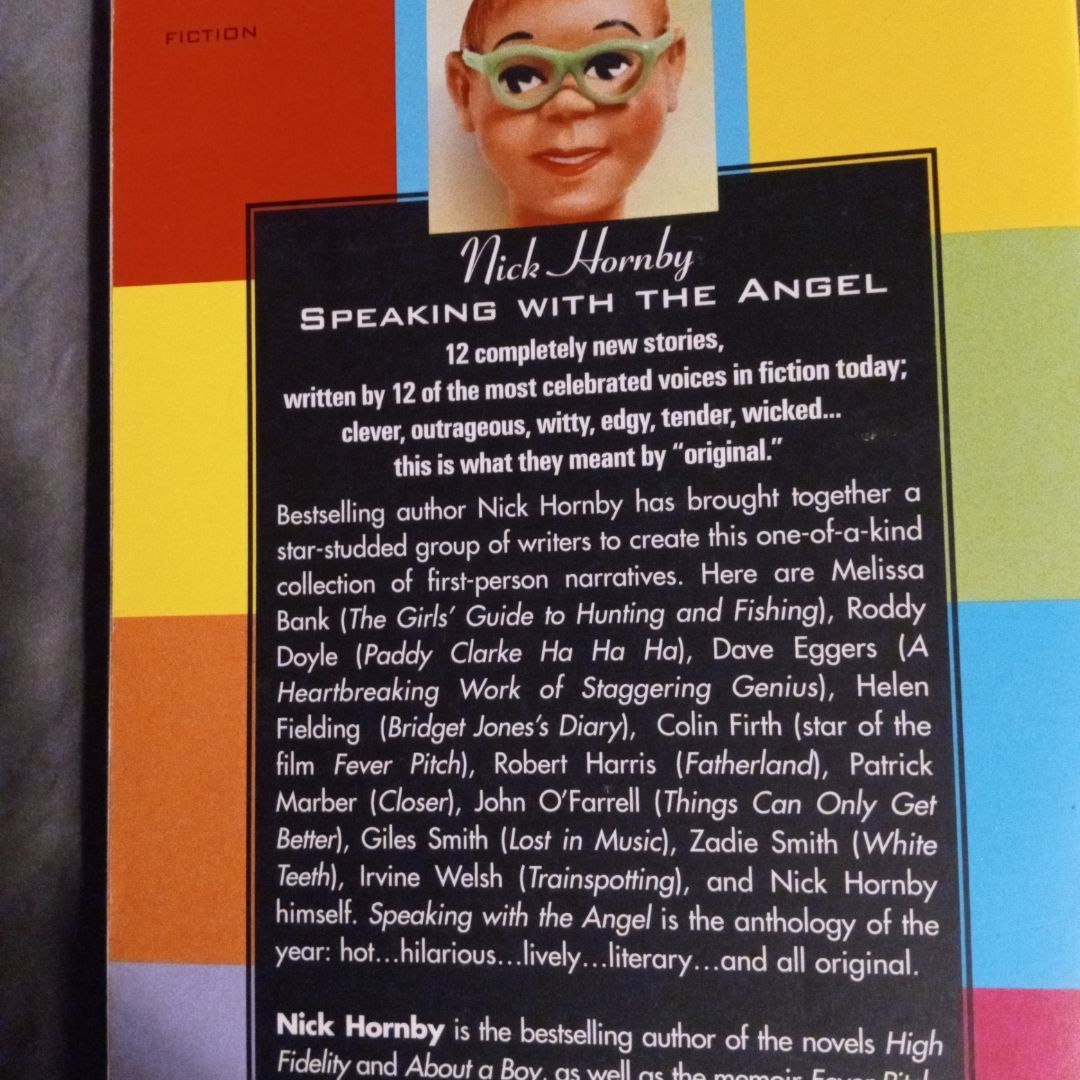 FICTION
Nick Hornby
SPEAKING WITH THE ANGEL
12 completely new stories,
written by 12 of the most celebrated voices in fiction today;
clever, outrageous, witty, edgy, tender, wicked...
this is what they meant by “original.”
Bestselling author Nick Hornby has brought together a
star-studded group of writers to create this one-of-a-kind
collection of first-person narratives. Here are Melissa
Bank (The Girls’ Guide to Hunting and Fishing), Roddy
Doyle (Paddy Clarke Ha Ha Ha), Dave Eggers (A
Heartbreaking Work of Staggering Genius), Helen
Fielding (Bridget Jones’s Diary), Colin Firth (star of the
film Fever Pitch), Robert Harris (Fatherland), Patrick
Marber (Closer), John O’Farrell (Things Can Only Get
Better), Giles Smith (Lost in Music), Zadie Smith (White
Teeth), Irvine Welsh (Trainspotting), and Nick Hornby
himself. Speaking with the Angel is the anthology of the
year: hot...hilarious...lively...literary...and all original.
Nick Hornby is the bestselling author of the novels High
Fidelity and About a Boy, as well as the memoir Fever Pitch,